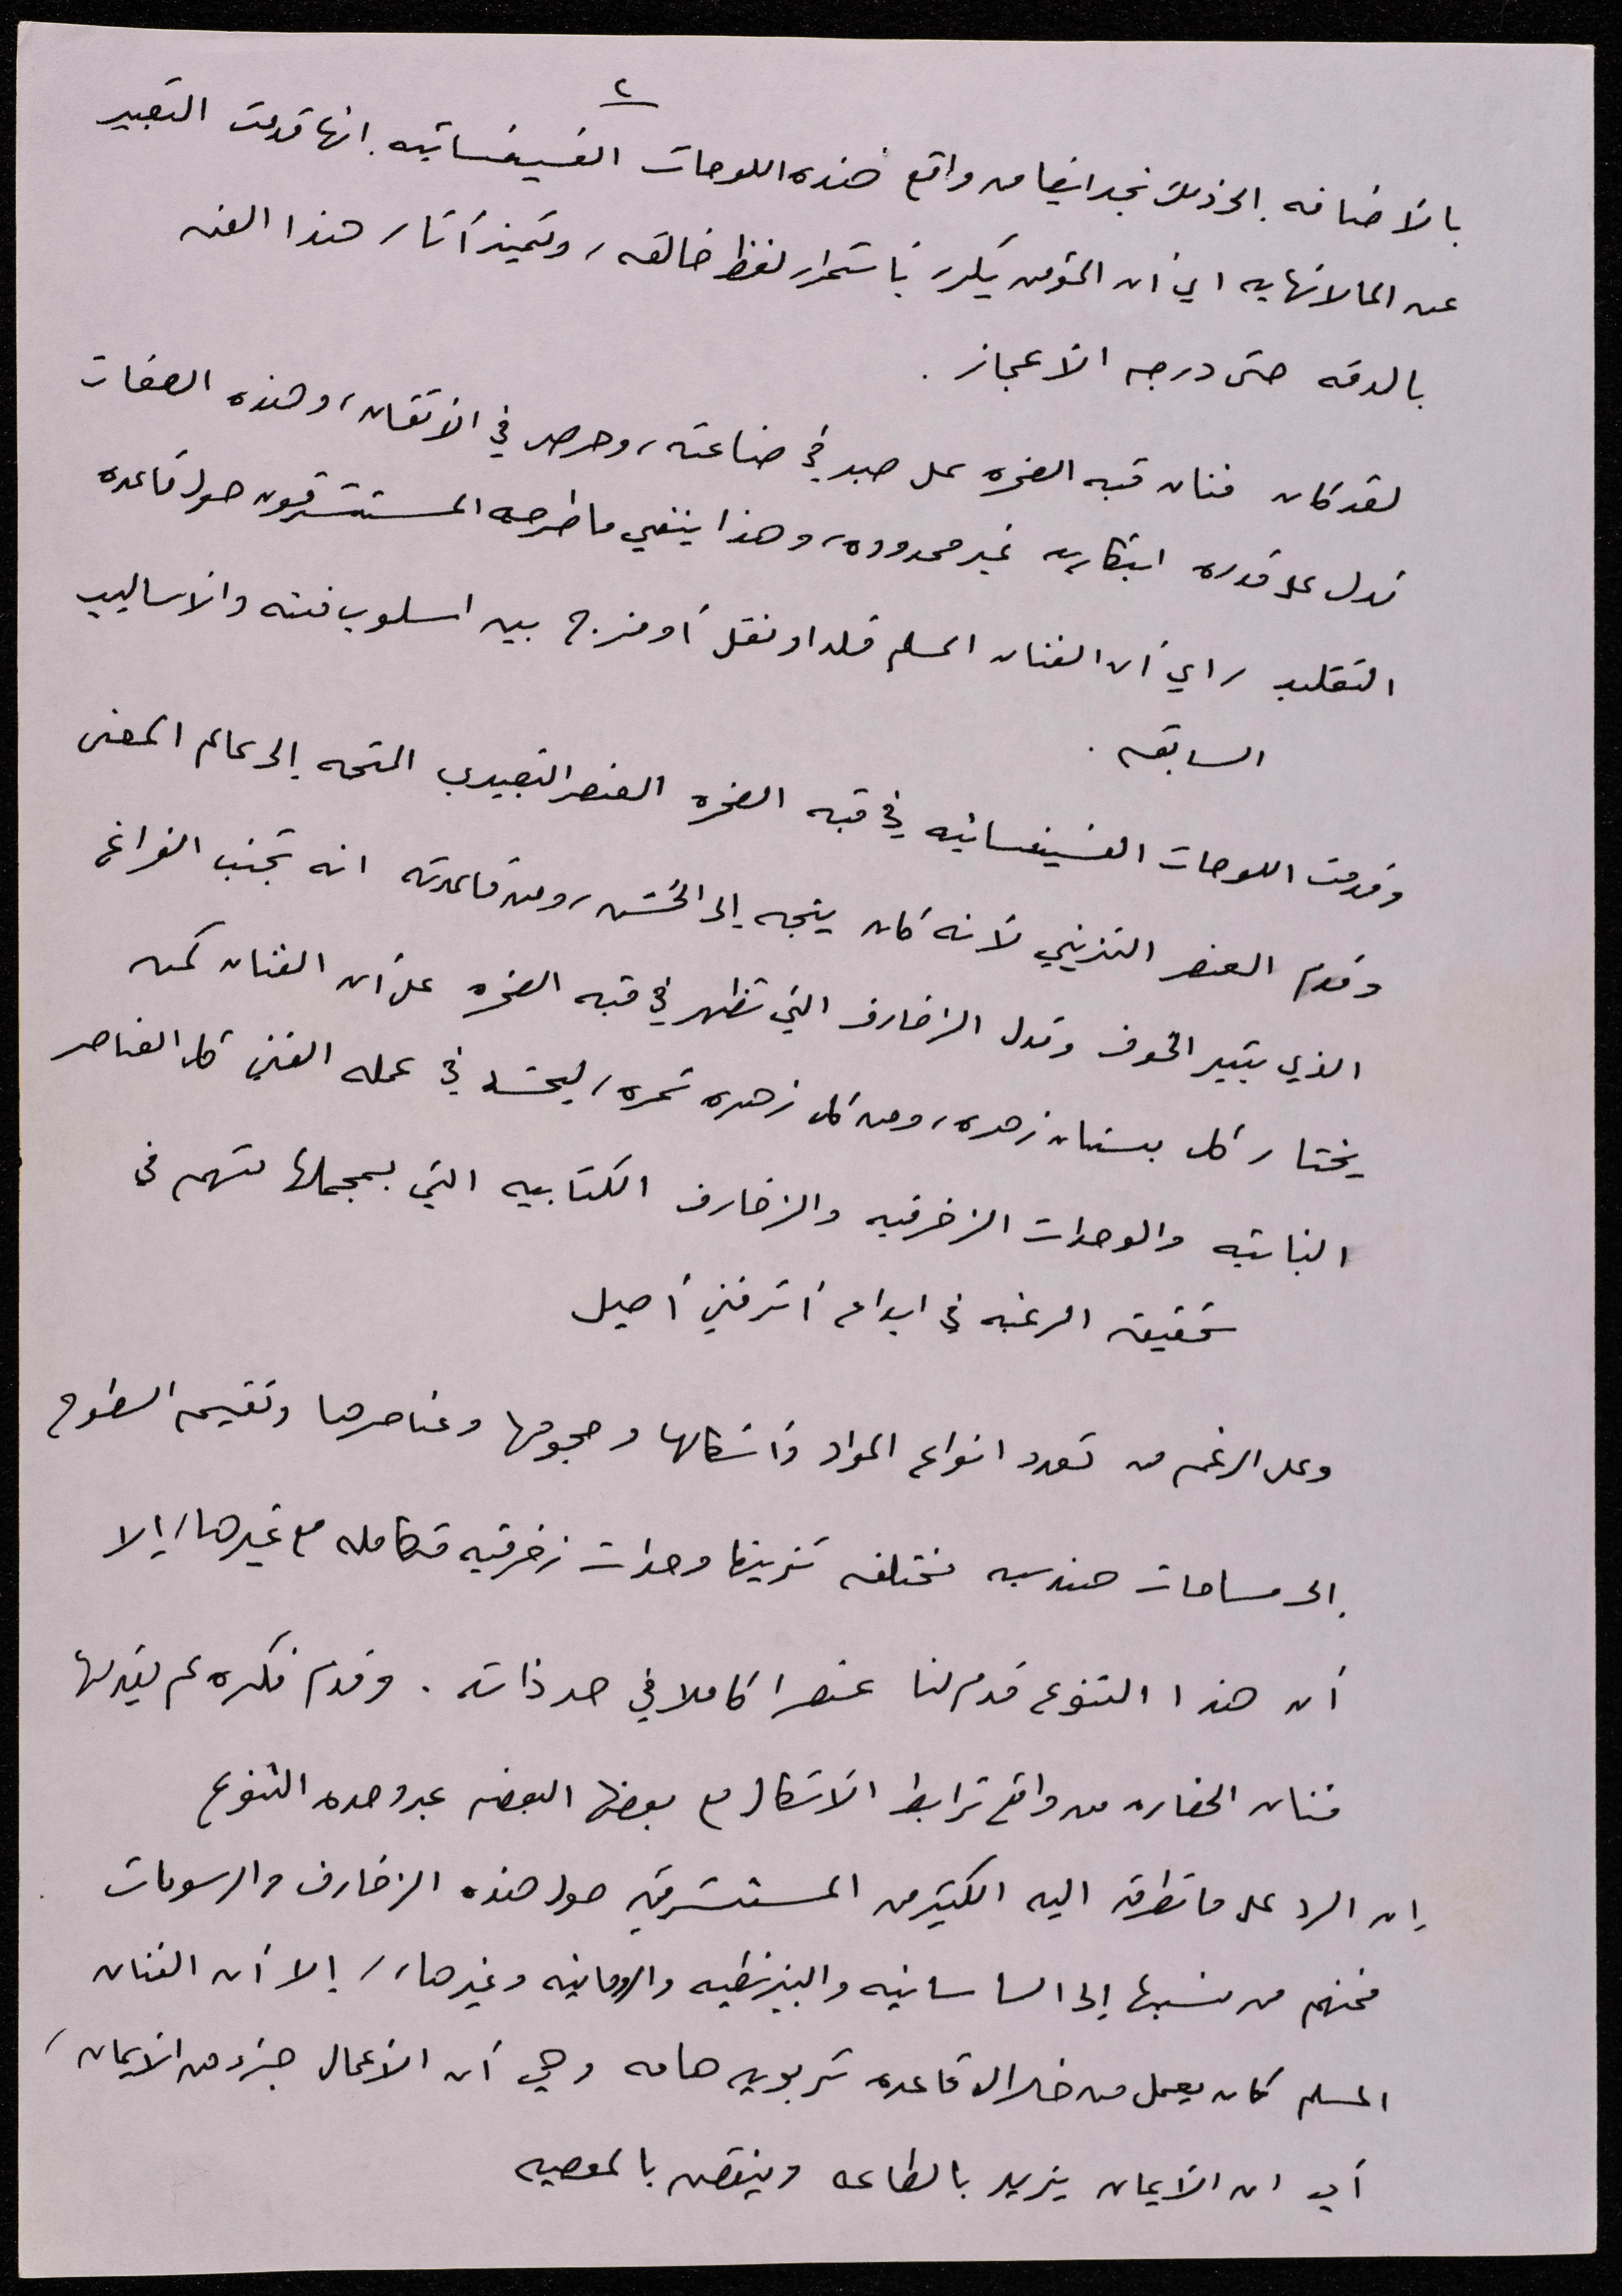 ٢
بالأضافه إلى ذلك نجد ايضا من واقع هذه اللوحات الفسيفسائيه. انها قدمت التعبير
عن المالانهايه اي أن المؤمن يكرر بأستمرار لفظ خالقه، وتميز آثار هذا الفن
بالدقه حتى درجه الأعجاز.
لقد كان فنان قبه الصخره على صبر في صناعته، وحرص في الأتقان، وهذه الصفات
تدل على قدره ابتكاريه غير محدوده، وهذا ينفي ما طرحه المستشرقون حول قاعده
التقليد، اي أن الفنان المسلم قلد او نقل أو مزج بين اسلوب فنه والأساليب
السابقه.
وقدمت اللوحات الفسيفسائيه في قبه الصخره العنصر التعبيري المتجه إلى عالم المعنى
وقدم العنصر التزييني لأنه كان يتجه إلى الحُسن، ومن قاعدته انه تجنب الفراغ
الذي يثير الخوف وتدل الزخارف التي تظهر في قبه الصخره على أن الفنان كمن
يختار كل بستان زهره، ومن كل زهره ثمره، ليحشد في عمله الفني كل العناصر
النباتيه والوحدات الزخرفيه والزخارف الكتابيه التي بمجملها تسهم في
تحقيق الرغبه في ابداع أثر فني أصيل
وعلى الرغم من تعدد انواع المواد وأشكالها وحجومها وعناصرها وتقسيم السطوح
إلى مساحات هندسيه مختلفه تزينها وحدات زخرفيه متكامله مع غيرها، إلا
أن هذا التنوع قدم لنا عنصرا كاملا في حد ذاته. وقدم فكره لم يقدمها
فنان الحضاره من واقع ترابط الأشكال مع بعضها البعض عبر وحده التنوع
إن الرد على ما تطرق اليه الكثير من المستشرقين حول هذه الزخارف والرسومات
فمنهم من نسبها إلى الساسانيه والبيزنطيه والرومانيه وغيرها،، إلا أن الفنان
المسلم كان يعمل من خلال قاعده تربويه هامه وهي أن الأعمال جزء من الأيمان،
أي ان الأيمان يزيد بالطاعه وينقص بالمعصيه